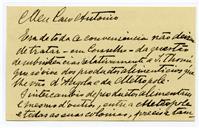 Meu Caro Antonio
Era de toda a conveniencia não deixar
de tratar - em Conselho - da questão
de subsistencias relativamente a S. Thomé,
que só vive dos productos alimenticios que
lhe vão d'Angola e da Metropole.
O intercambio de productos alimentares
é mesmo d'outros, entre a Metropole
e todas as suas colonias, precisa tam